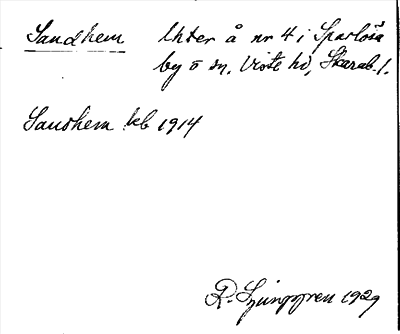 Sandhem Uter å nr 4 i Sparlösa
by o sn, Viste hd, Skarab. l.
Sandhem kb 1914
R. Ljunggren 1929